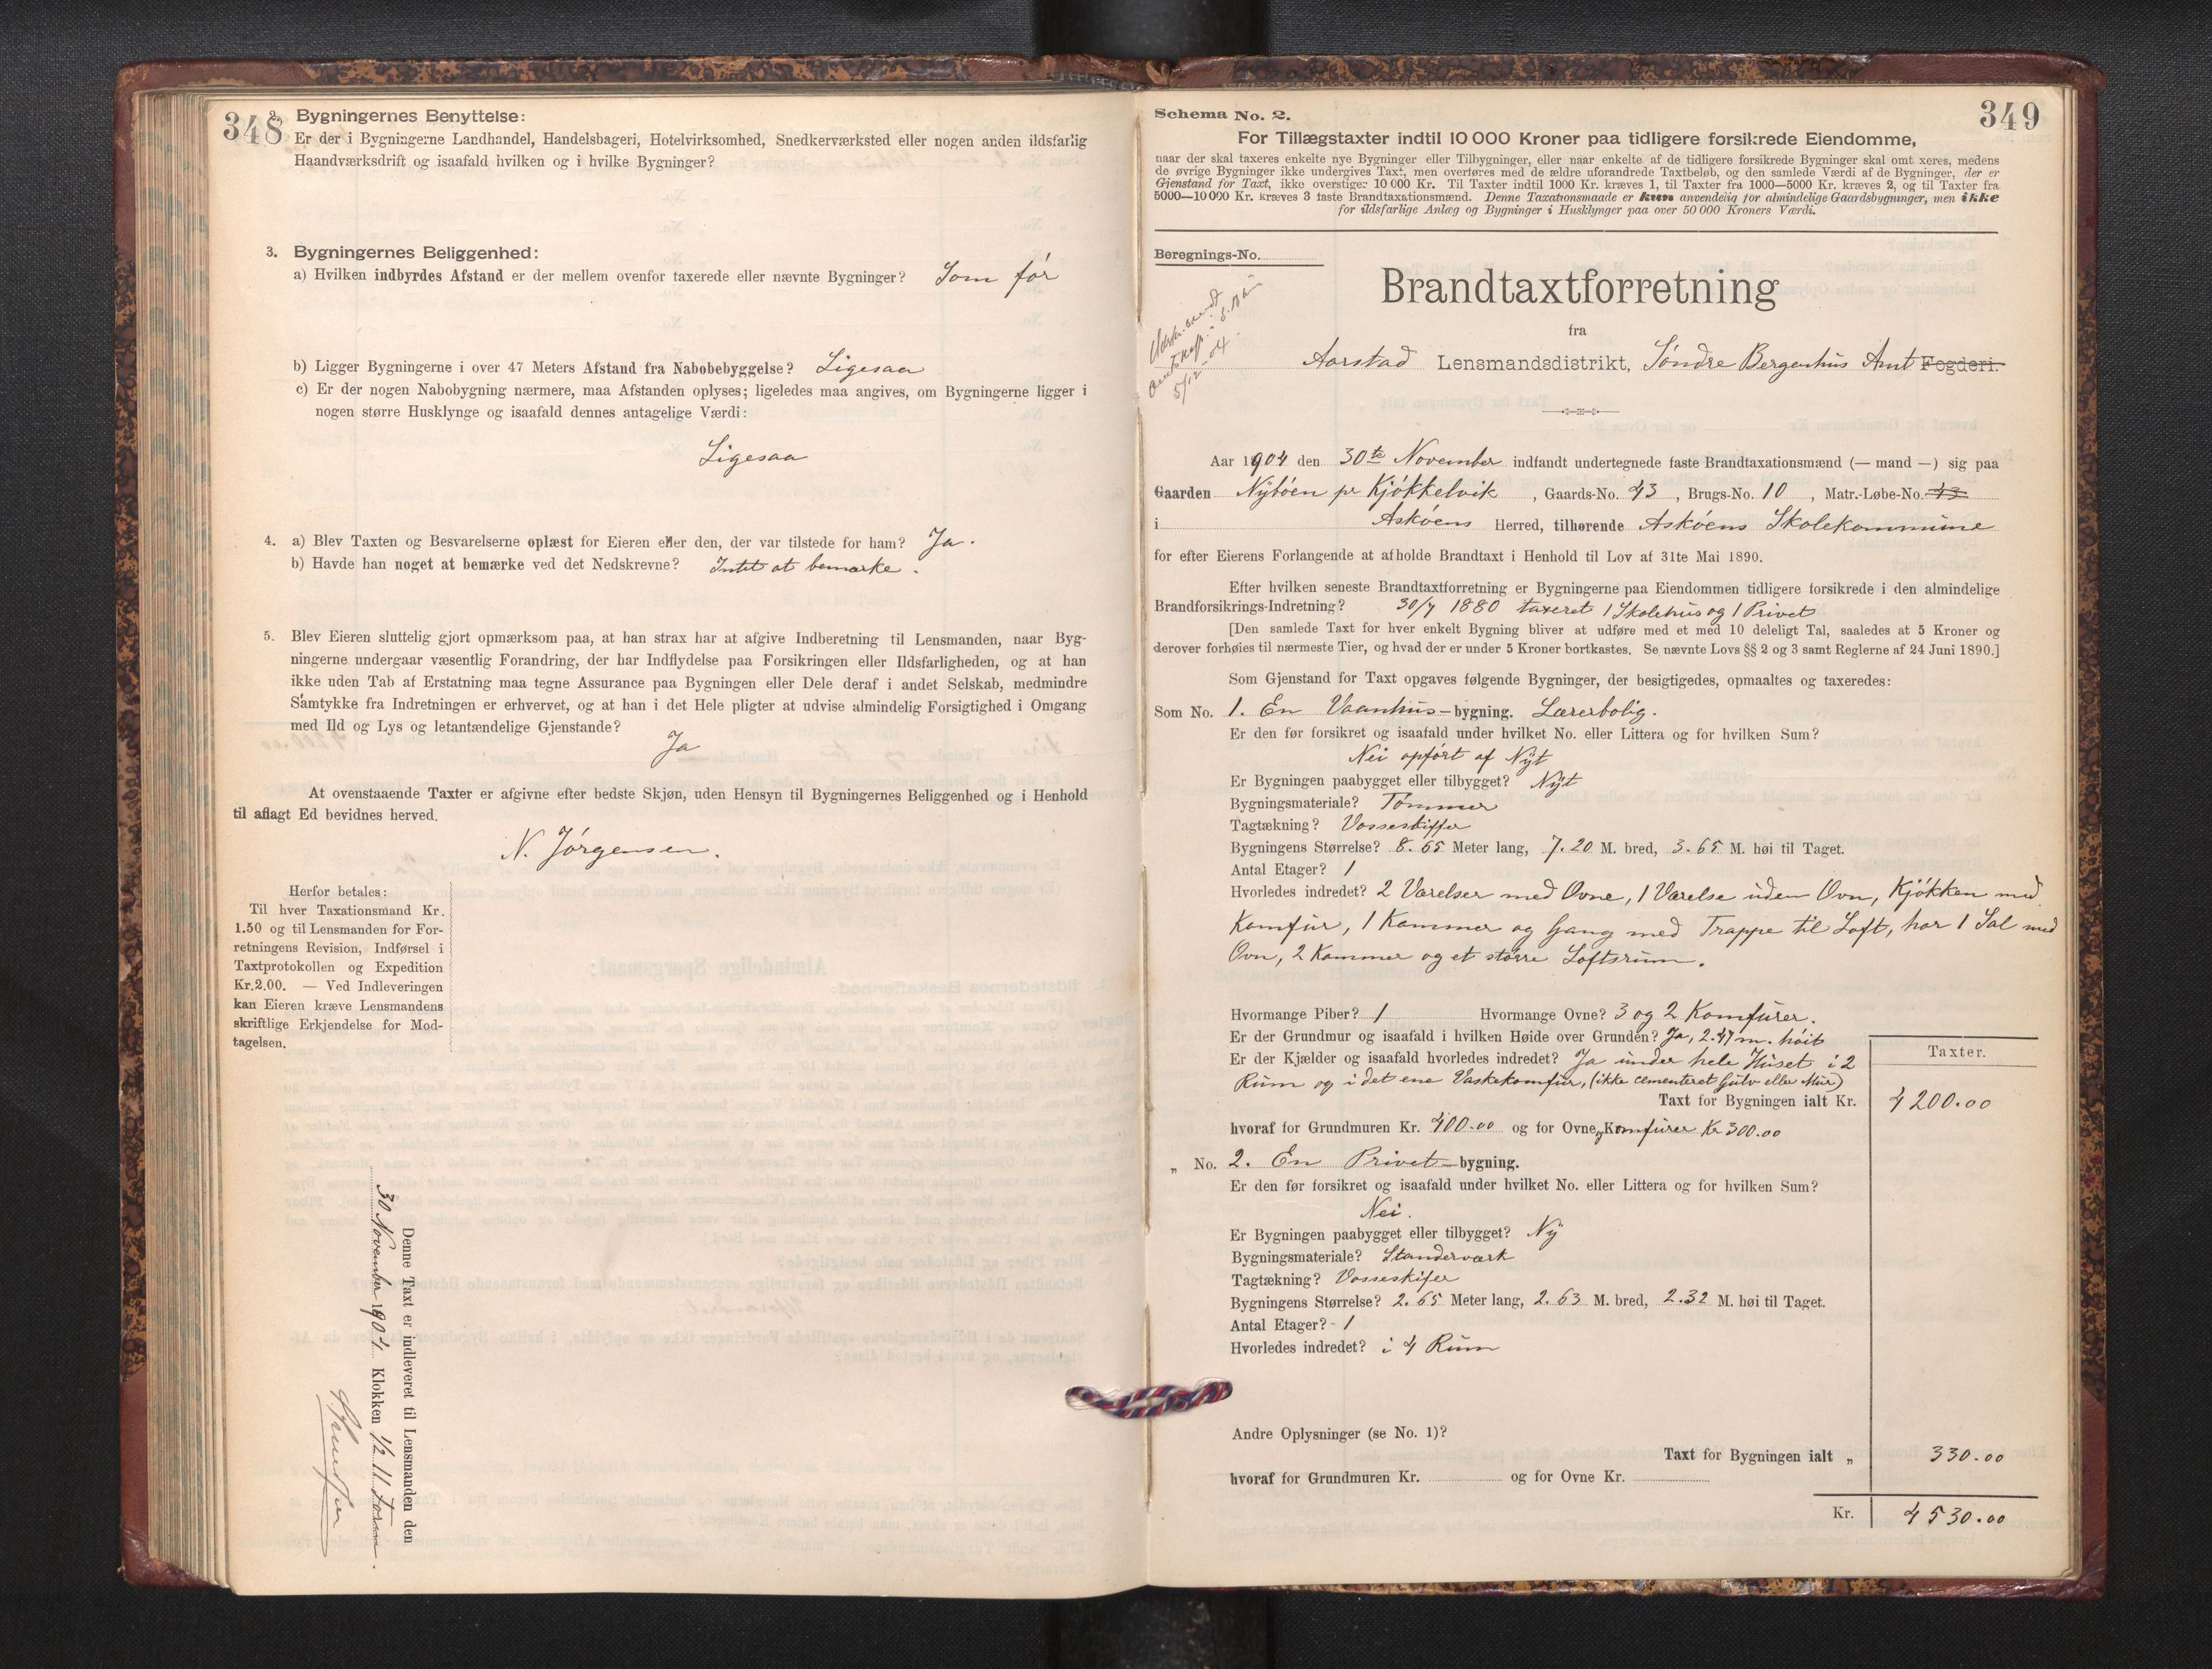 348
2. Bygningernes Benyttelse:
Er der i Bygningerne Landhandel, Handelsbageri, Hotelvirksomhed, Snedkerværksted eller nogen anden ildsfarlig
Haandværksdrift og isaafald hvilken og i hvilke Bygninger?
3. Bygningernes Beliggenhed:
a) Hvilken indbyrdes Afstand er der mellem ovenfor taxerede eller nævnte Bygninger? Som før
b) Ligger Bygningerne i over 47 Meters Afstand fra Nabobebyggelse? Ligesaa
c) Er der nogen Nabobygning nærmere, maa Afstanden oplyses; ligeledes maa angives, om Bygningerne ligger i
nogen større Husklynge og isaafald dennes antagelige Værdi:
Ligesaa
4. a) Blev Taxten og Besvarelserne oplæst for Eieren eller den, der var tilstede for ham? Ja.
b) Havde han noget at bemærke ved det Nedskrevne? Intet at bemærke.
5. Blev Eieren sluttelig gjort opmærksom paa, at han strax har at afgive Indberetning til Lensmanden, naar Byg-
ningerne undergaar væsentlig Forandring, der har Indflydelse paa Forsikringen eller Ildsfarligheden, og at han
ikke uden Tab af Erstatning maa tegne Assurance paa Bygningen eller Dele deraf i andet Selskab, medmindre
Samtykke fra Indretningen er erhvervet, og at han i det Hele pligter at udvise almindelig Forsigtighed i Omgang
med Ild og Lys og letantændelige Gjenstande?
Ja
At ovenstaaende Taxter er afgivne efter bedste Skjøn, uden Hensyn til Bygningernes Beliggenhed og i Henhold
til aflagt Ed bevidnes herved.
N. Jørgensen.
Herfor betales:
Til hver Taxationsmand Kr.
1.50 og til Lensmanden for For-
retningens Revision, Indførsel i
Taxtprotokollen og Expedition
Kr. 2,00. — Ved Indleveringen
kan Eieren kræve Lensmandens
skriftlige Erkjendelse for Mod-
tagelsen.
Denne Taxt er indleveret til Lensmanden den
30 November 1904 Klokken 1/2 11 form.
349
Schema No. 2.
For Tillægstaxter indtil 10 000 Kroner paa tidligere forsikrede Eiendomme,
naar der skal taxeres enkelte nye Bygninger eller Tilbygninger, eller naar enkelte af de tidligere forsikrede Bygninger skal omt xeres, medens
de øvrige Bygninger ikke undergives Taxt, men overføres med de ældre uforandrede Taxtbeløb, og den samlede Værdi af de Bygninger, der er
Gjenstand for Taxt, ikke overstiger 10 000 Kr. Til Taxter indtil 1000 Kr. kræves 1, til Taxter fra 1000—5000 Kr. kræves 2, og til Taxter fra
5000—10 000 Kr. kræves 3 faste Brandtaxationsmænd. Denne Taxationsmaade er kun anvendelig for almindelige Gaardsbygninger, men ikke
for ildsfarlige Anlæg og Bygninger i Husklynger paa over 50 000 Kroners Værdi.
Beregnings-No.
5/12 04.
Brandtaxtforretning
fra
Aarstad Lensmandsdistrikt, Søndre Bergenhus Amt Fogderi.
Aar 1904 den 30te November indfandt undertegnede faste Brandtaxationsmænd (— mand —) sig paa
Gaarden Nybøen pr Kjøkkelvik, Gaards-No. 43, Brugs-No. 10, Matr.-Løbe-No. 43
i Askøens Herred, tilhørende Askøens Skolekommune
for efter Eierens Forlangende at afholde Brandtaxt i Henhold til Lov af 31te Mai 1890.
Efter hvilken seneste Brandtaxtforretning er Bygningerne paa Eiendommen tidligere forsikrede i den almindelige
Brandforsikrings-Indretning? 30/7 1880 taxeret 1 Skolehus og 1 Privet
[Den samlede Taxt for hver enkelt Bygning bliver at udføre med et med 10 deleligt Tal, saaledes at 5 Kroner og
derover forhøies til nærmeste Tier, og hvad der er under 5 Kroner bortkastes. Se nævnte Lovs §§ 2 og 3 samt Reglerne af 24 Juni 1890.]
Som Gjenstand for Taxt opgaves følgende Bygninger, der besigtigedes, opmaaltes og taxeredes:
Som No. 1. En Vaanhus-bygning. Lærerbolig.
Er den før forsikret og isaafald under hvilket No. eller Littera og for hvilken Sum?
Nei opført af Nyt
Er Bygningen paabygget eller tilbygget? Nyt
Bygningsmateriale? Tømmer
Tagtækning? Vosseskiffer
Bygningens Størrelse? 8.65 Meter lang, 7.20 M. bred, 3.65 M. høi til Taget.
Antal Etager? 1
Hvorledes indredet? 2 Værelser med Ovne, 1 Værelse uden Ovn, Kjøkken med
Komfur, 1 Kammer og Gang med Trappe til Loft, har 1 Sal med
Ovn, 2 Kammer og et større Loftsrum.
Hvormange Piber? 1 Hvormange Ovne? 3 og 2 Komfurer.
Er der Grundmur og isaafald i hvilken Høide over Grunden? Ja, 2.47 m. høit
Er der Kjælder og isaafald hvorledes indredet? Ja under hele Huset i 2
Rum og i det ene Vaskekomfur, (ikke cementeret Gulv eller Mur)
Taxter.
Taxt for Bygningen ialt Kr. 4200.00
hvoraf for Grundmuren Kr. 400.00 og for Ovne og Komfurer Kr 300.00
„ No. 2. En Privet-bygning.
Er den før forsikret og isaafald under hvilket No. eller Littera og for hvilken Sum?
Nei.
Er Bygningen paabygget eller tilbygget? Ny
Bygningsmateriale? Standerværk
Tagtækning? Vosseskifer
Bygningens Størrelse? 2.65 Meter lang, 2.63 M. bred, 2.32 M. høi til Taget.
Antal Etager? 1
Hvorledes indredet? i 4 Rum
Andre Oplysninger (se No. 1)?
Taxt for Bygningen ialt „ 330.00
hvoraf for Grundmuren Kr. og for Ovne Kr.
Kr. 4530.00